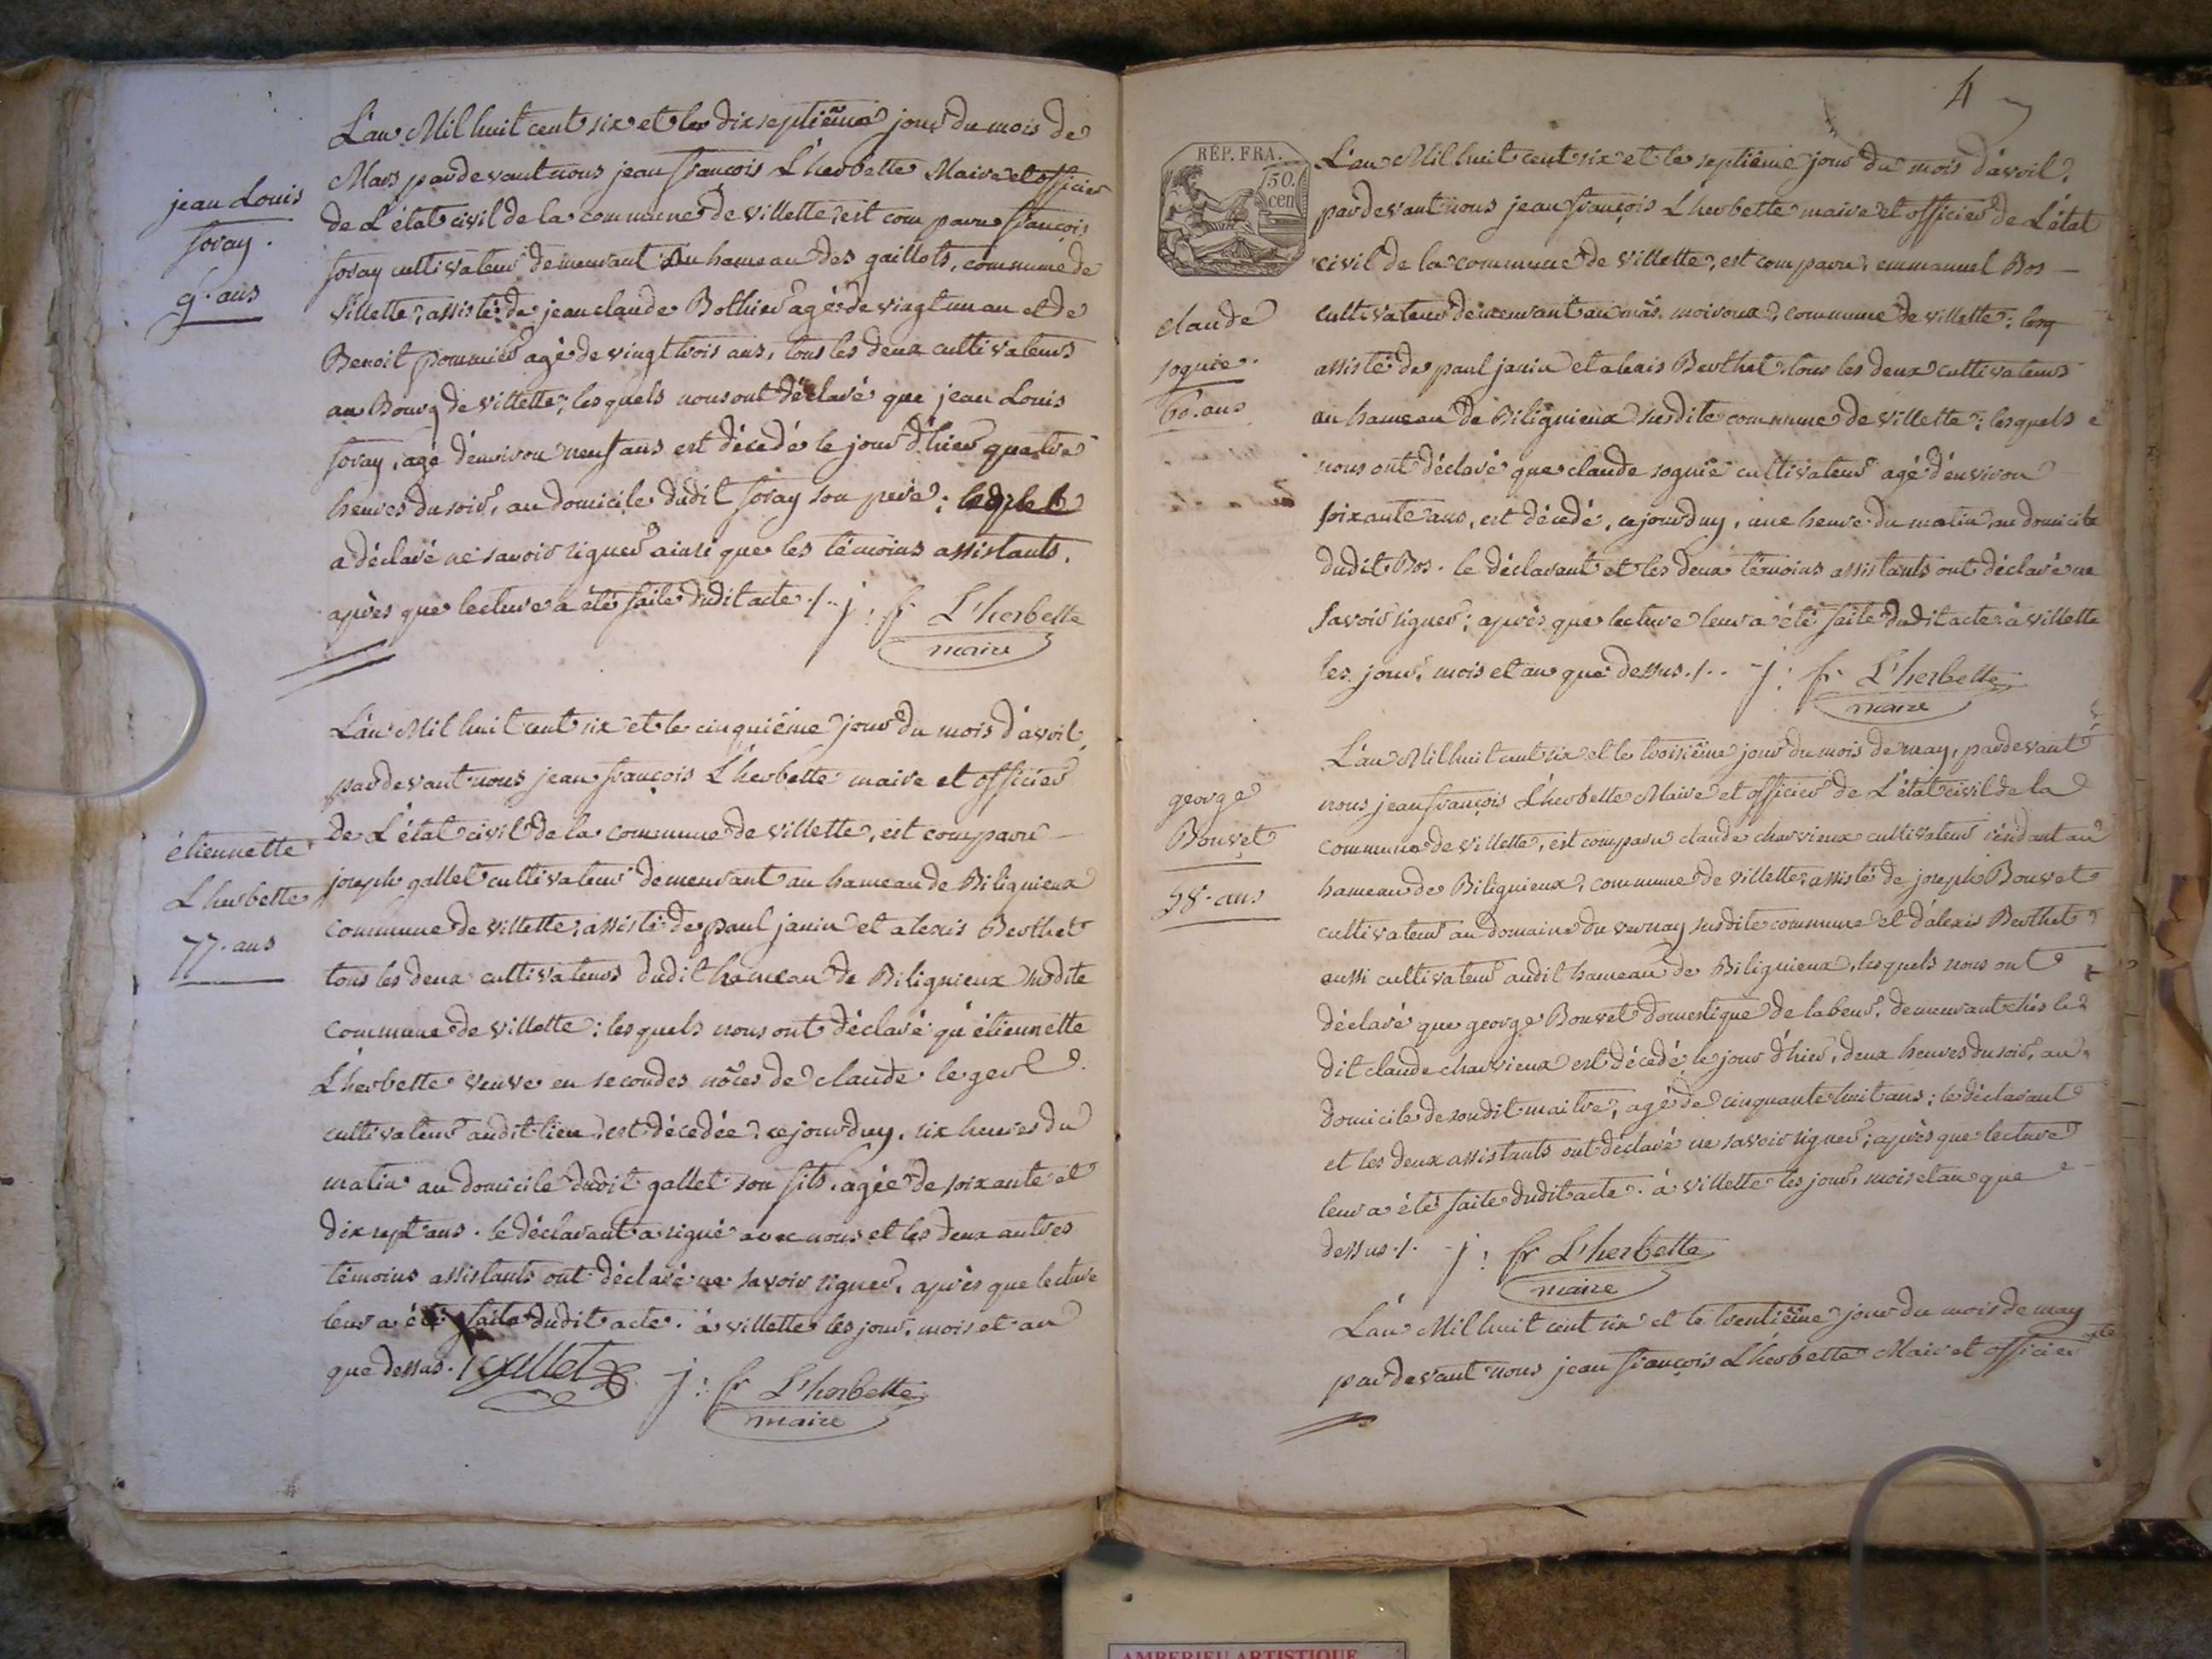 jean Louis
foray.
9. ans
L'an Mil huit cent six et le dix septiême jour du mois de
Mars pardevant nous jean françois L'herbette Maire et officier
de L'état civil de la commune de villette, est comparu françois
foray cultivateur demeurant au hameau des gaillots, commune de
villette, assisté de jean claude Bothier agé de vingt un an et de
Benoit pommier agé de vingt trois ans, tous les deux cultivateurs
au Bourg de villette; lesquels nous ont déclaré que jean Louis
foray, agé d'environ neuf ans est décedé le jour d'hier quatre
heures du soir, au domicile dudit foray son pere; lequel
a déclaré ne savoir signer ainsi que les témoins assistants.
après que lecture a été faite dudit acte ./. j: fr L'herbette
maire
étiennette
L'herbette
77. ans
L'an Mil huit cent six et le cinquiême jour du mois d'avril
pardevant nous jean françois L'herbette maire et officier
de L'état civil de la commune de villette, est comparu
joseph gallet cultivateur demeurant au hameau de Bilignieux
commune de villette, assisté de paul janin et alexis Berthet
tous les deux cultivateurs dudit hameau de Bilignieux susdite
commune de villette; lesquels nous ont déclaré qu'étiennette
L'herbette veuve en secondes nôces de claude leger
cultivateur audit lieu, est décedée, cejourduy, six heures du
matin au domicile dudit gallet son fils, agée de soixante et
dix sept ans. le déclarant a signé avec nous et les deux autres
témoins assistants ont déclaré ne savoir signer, après que lecture
leur a été faite dudit acte. à villette les jour, mois et an
que dessus ./ gallet j: fr L'herbette
maire
4
RÉP. FRA.
50.
cen
claude
sognié.
60. ans
L'an Mil huit cent six et le septiême jour du mois d'avril,
pardevant nous jean françois L'herbette maire et officier de L'état
civil de la commune de villette, est comparu, emmanuel Bos
cultivateur demeurant au mâs moiroux, commune de villette; lesq
assisté de paul janin et alexis Berthet, tous les deux cultivateurs
au hameau de Bilignieux susdite commune de villette; lesquels
nous ont déclaré que claude sognié cultivateur agé d'environ
soixante ans, est décedé, cejourduy, une heure du matin, au domicile
dudit Bos. le déclarant et les deux témoins assistants ont déclaré ne
savoir signer; après que lecture leur a été faite dudit acte à villette
les jour, mois et an que dessus ./.. j: fr L'herbette
maire
george
Bouvet
58. ans
L'an Mil huit cent six et le troisiême jour du mois de may, pardevant
nous jean françois L'herbette Maire et officier de L'état civil de la
commune de villette, est comparu claude charvieux cultivateur résidant au
hameau de Bilignieux, commune de villette, assisté de joseph Bouvet
cultivateur au domaine du vernay susdite commune et d'alexis Berthet,
aussi cultivateur audit hameau de Bilignieux, lesquels nous ont
déclaré que george Bouvet domestique de labeur, demeurant chés le
dit claude charvieux est décedé le jour d'hier, deux heures du soir, au
domicile de sondit maitre, agé de cinquante huit ans; le déclarant
et les deux assistants ont déclaré ne savoir signer; après que lecture
leur a été faite dudit acte. à villette les jour, mois et an que
dessus ./. j: fr L'herbette
maire
L'an Mil huit cent six et le trentiême jour du mois de may
pardevant nous jean françois L'herbette Maire et officier
AMBERIEU ARTISTIQUE